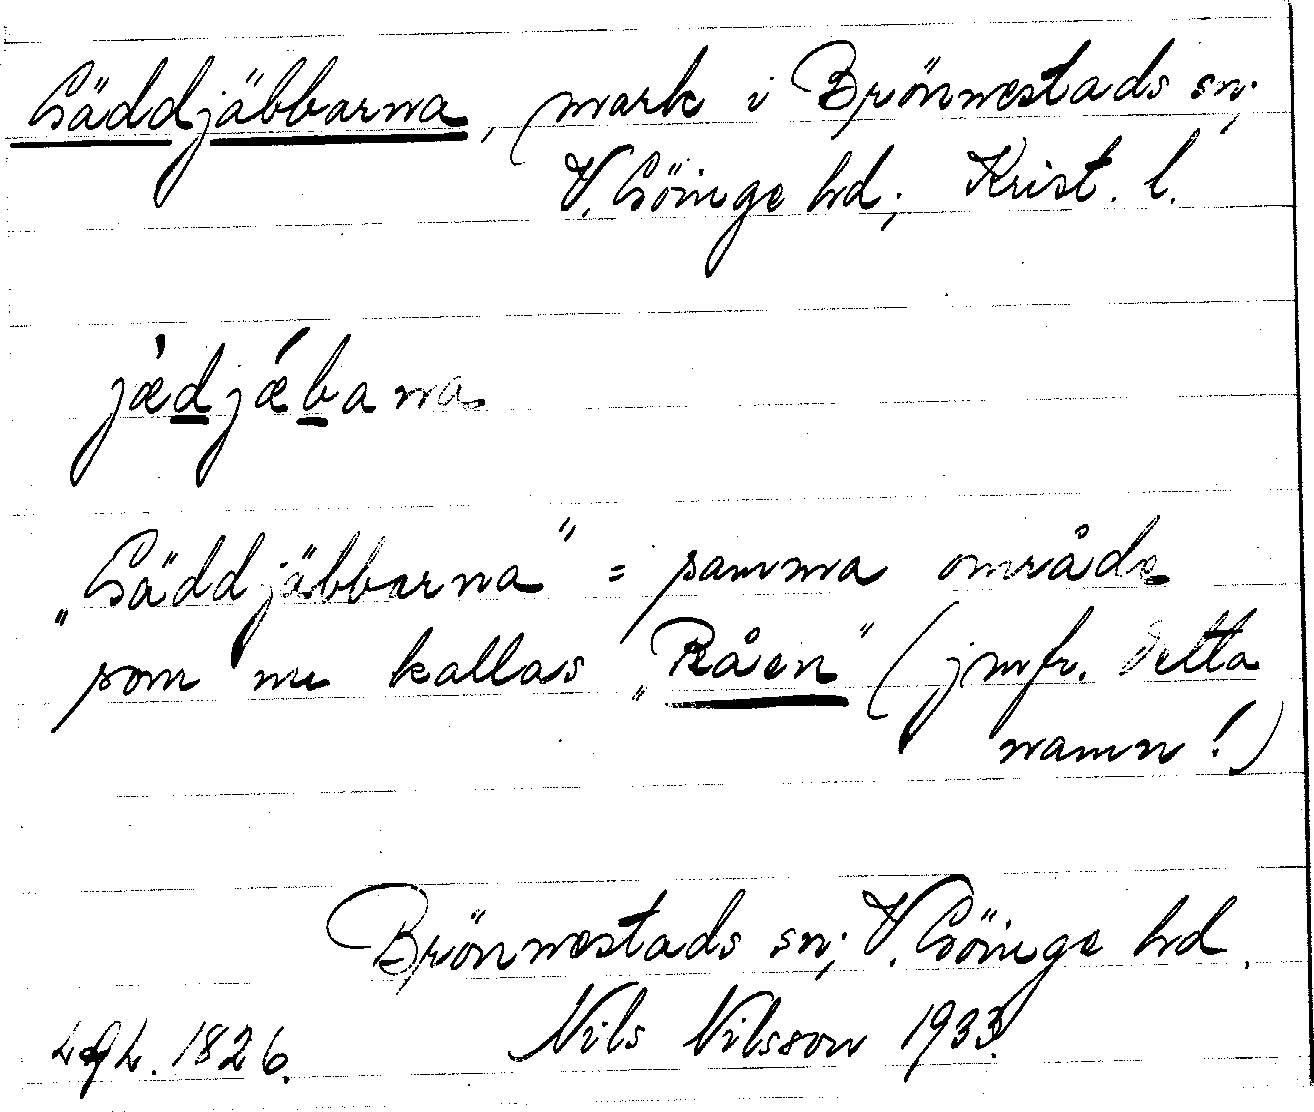 Gäddjäbbarna, mark i Brönnestads sn;
V. Göinge hd; Krist. l.
jæ̀djǽbana
„Gäddjäbbarna” = samma område
som nu kallas „Råen” (jmfr. detta
namn!)
Brönnestads sn; V. Göinge hd.
Nils Nilsson 1933.
1826.